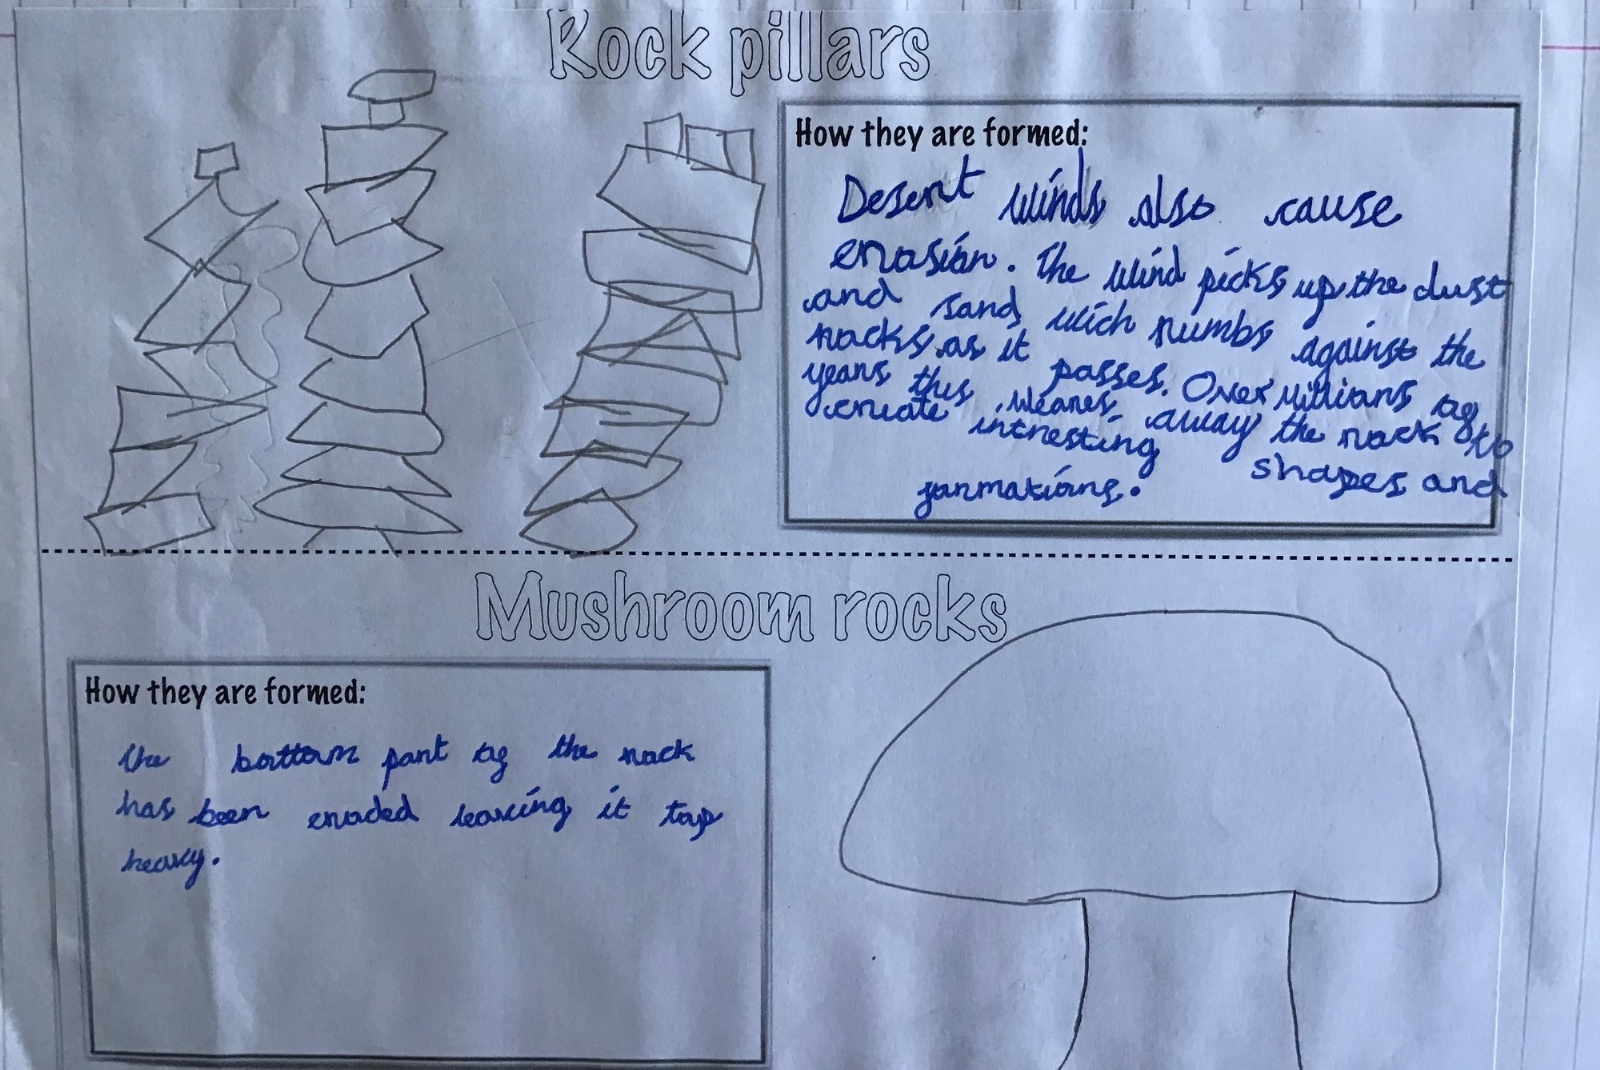 Rock pillars
How they are formed:
Desert winds also cause
erosion. The wind picks up the dust
and sand wich rumbs against the
rocks as it passes. Over millions of
years this weares away the rock to
create intresting shapes and
formations.
Mushroom rocks
How they are formed:
the bottom part of the rock
has been eroded leaving it top
heavy.